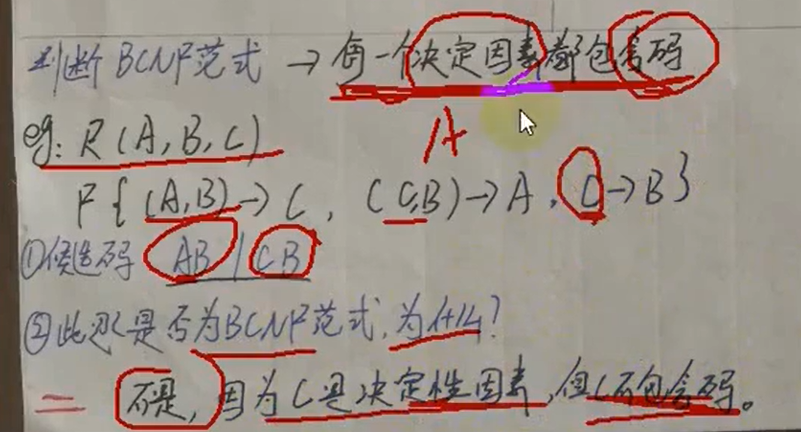 判断BCNF范式 → 每一个决定因素都包含码
eg: R(A,B,C)
A
F{(A,B)→C, (C,B)→A, C→B}
①候选码 AB / CB
②此处是否为BCNF范式,为什么?
= 不是,因为C是决定性因素,但C不包含码。